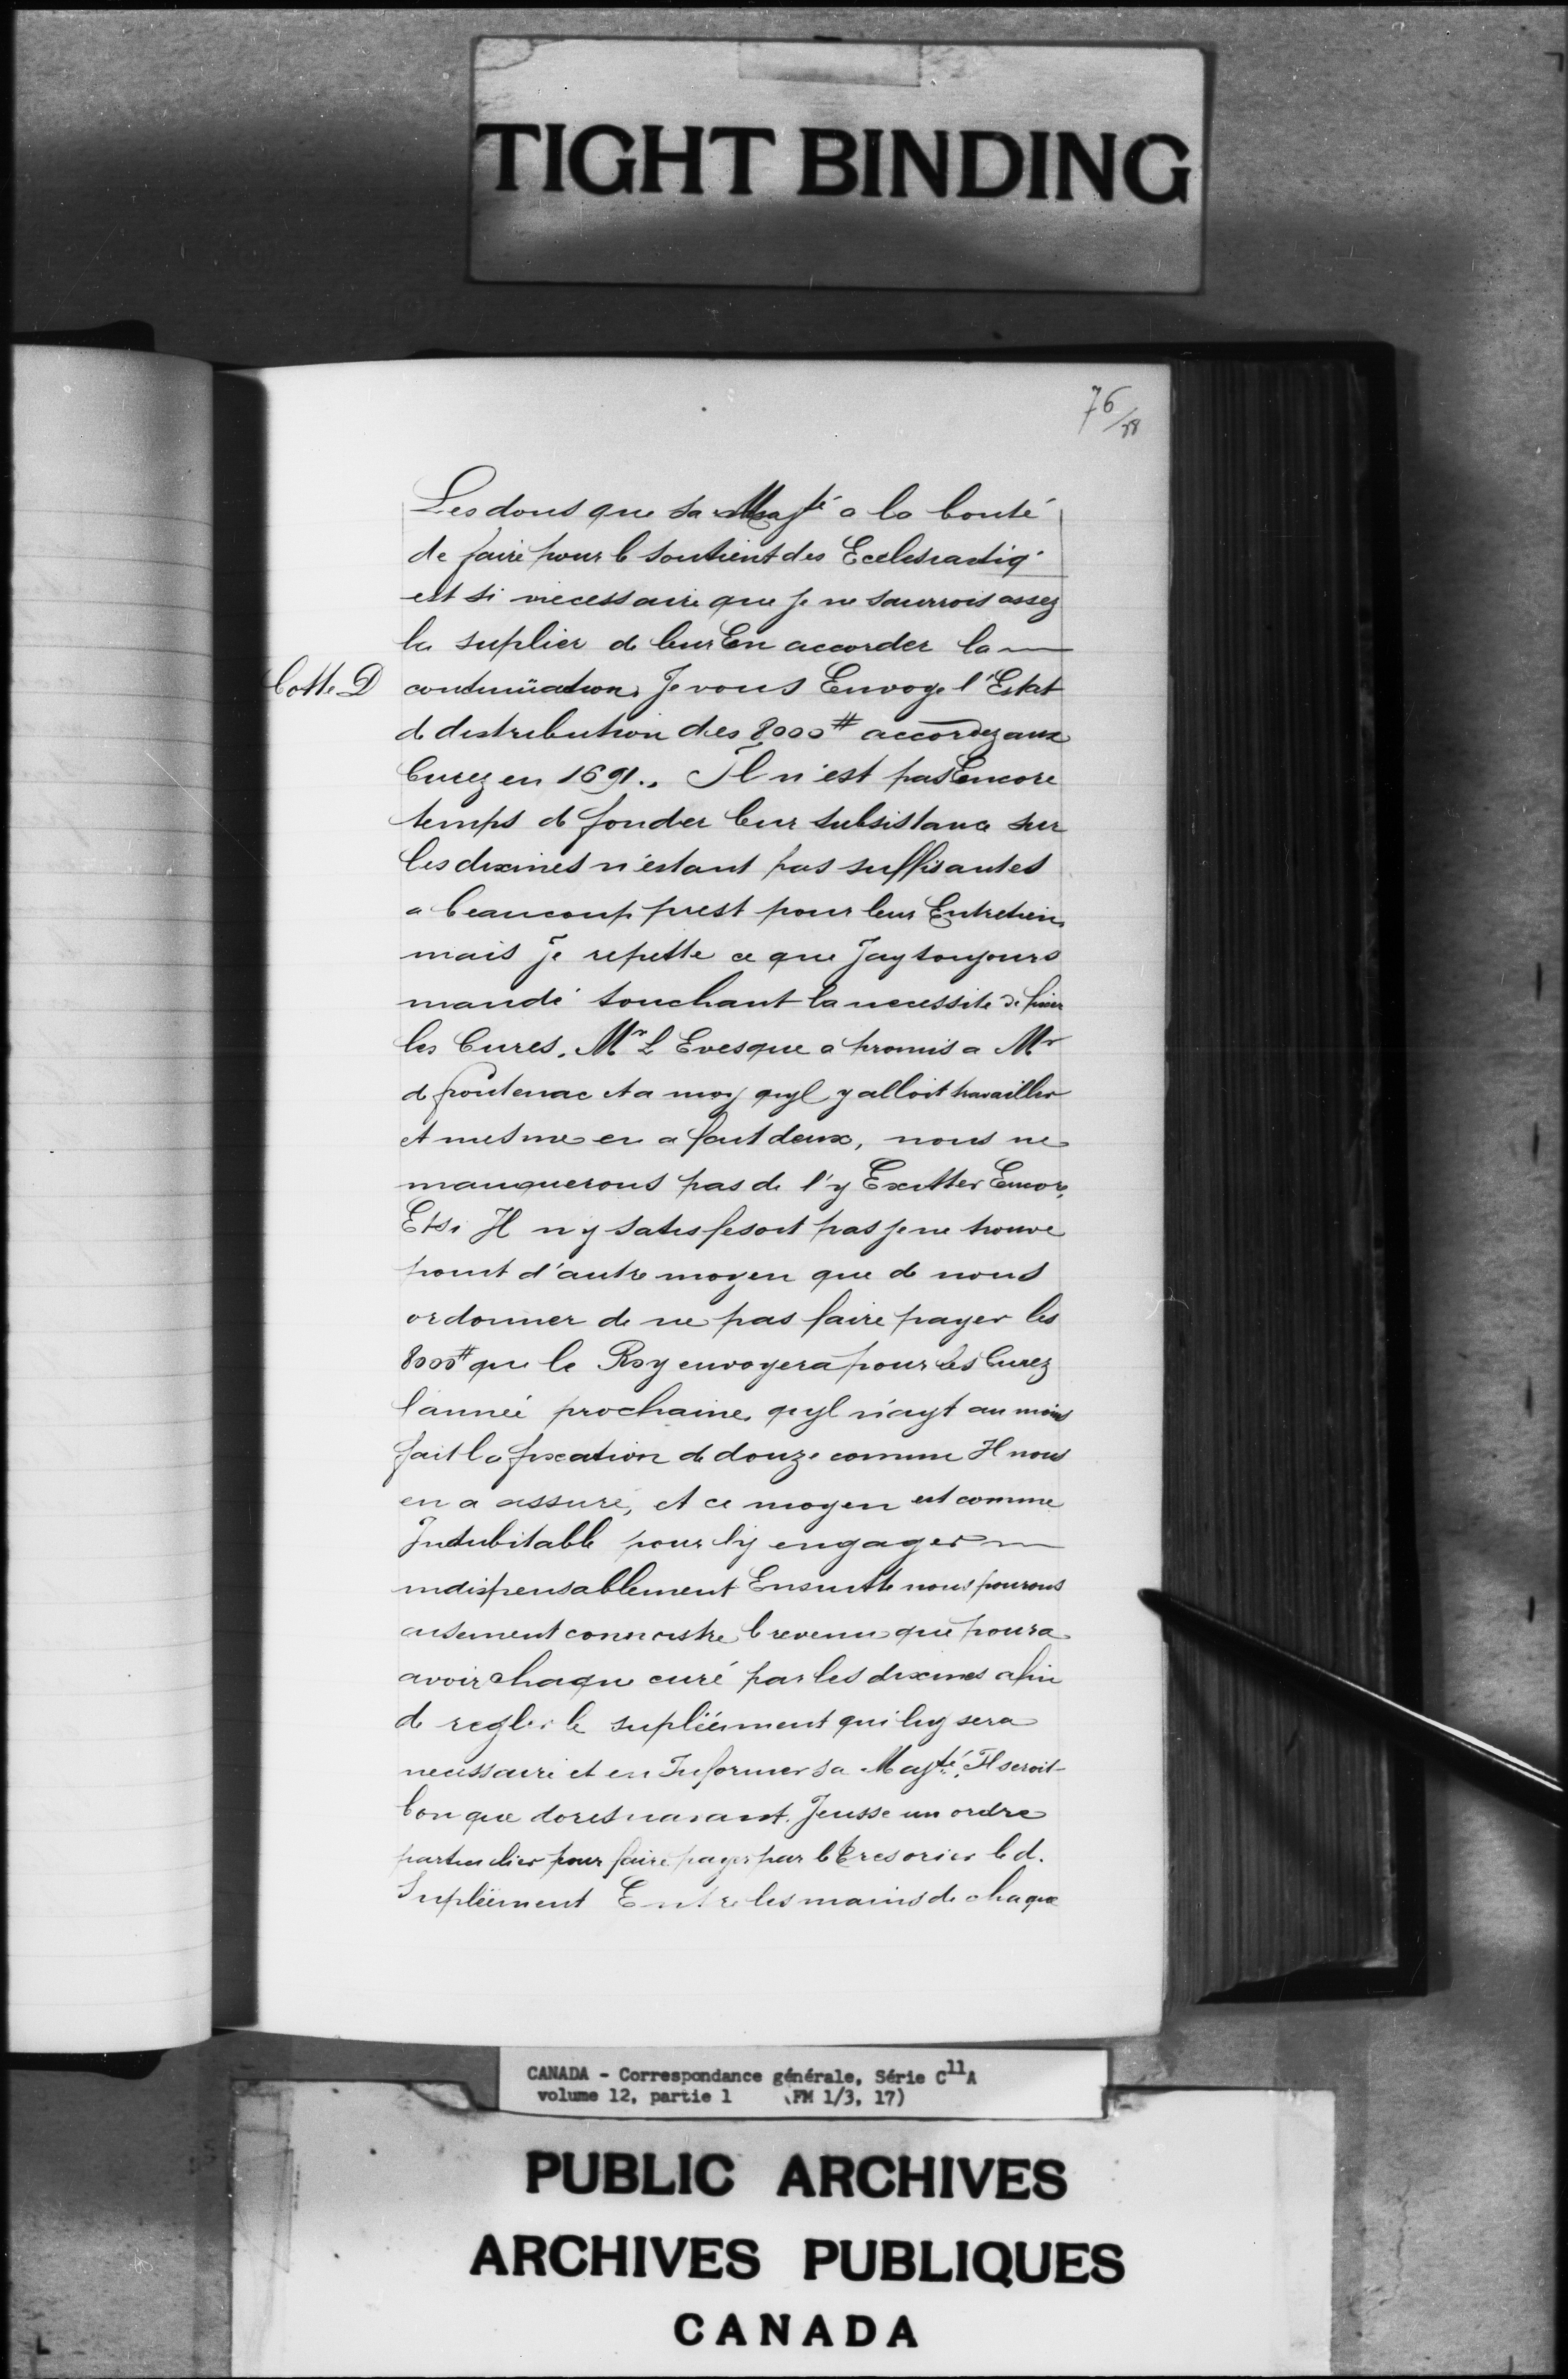 TIGHT BINDING
76/78
Les dons que sa Majté a la bonté
de faire pour le soutient des Ecclesiastiq.
est si necessaire que je ne saurrois assez
la suplier de leur En accorder la
Cotte D continüation, Je vous Envoye l'Estat
de distribution des 8000# accordez aux
Curez en 1691., Il n'est pas Encore
temps de fonder leur subsistance sur
les dixmes n'estant pas suffisantes
a beaucoup prest pour leur Entretien
mais Je repette ce que Jay toujours
mandé touchant la necessite de fixer
les Cures. Mr L'Evesque a promis a Mr
de frontenac et a moy qu'yl y alloit travailler
et mesme en a fait deux, nous ne
manquerons pas de l'y Exitter Encore,
Et si Il n'y satisfesoit pas je ne trouve
point d'autre moyen que de nous
ordonner de ne pas faire payer les
8000# que le Roy envoyera pour les Curez
l'année prochaine, qu'yl n'ayt au moins
fait la fixation de douze comme Il nous
en a assuré, et ce moyen est comme
Indubitable pour l'y engager
indispensablement Ensuitte nous pourons
aisement connoistre le revenu que poura
avoir chaque curé par les dixmes afin
de regler le supliéement qui luy sera
necessaire et en Informer sa Majté. Il seroit
bon que doresnavant. Jeusse un ordre
particulier pour faire payer par le tresorier led.
Supléement Entre les mains de chaque
CANADA - Correspondance générale, Série C11A
volume 12, partie 1 (FM 1/3, 17)
PUBLIC ARCHIVES
ARCHIVES PUBLIQUES
CANADA